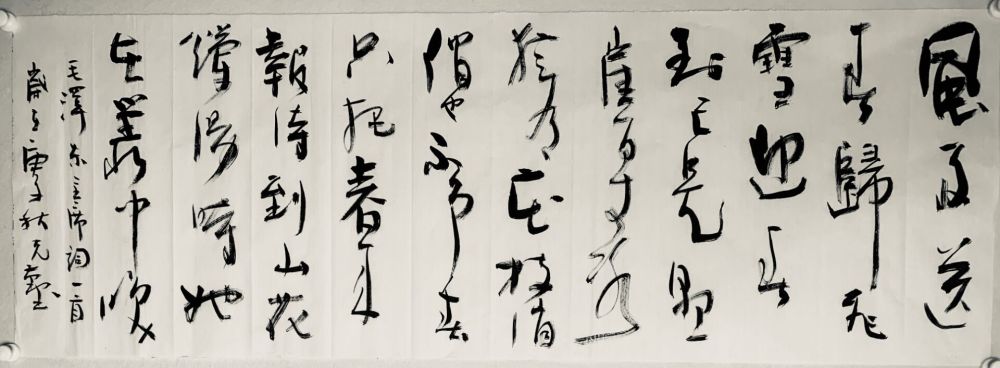 風雨送
春歸飛
雪迎春
到已是懸
崖百丈冰
猶有花枝俏
俏也不争春
只把春来
報待到山花
爛漫時她
在叢中笑
毛澤东主席詞一首
歲在庚子秋